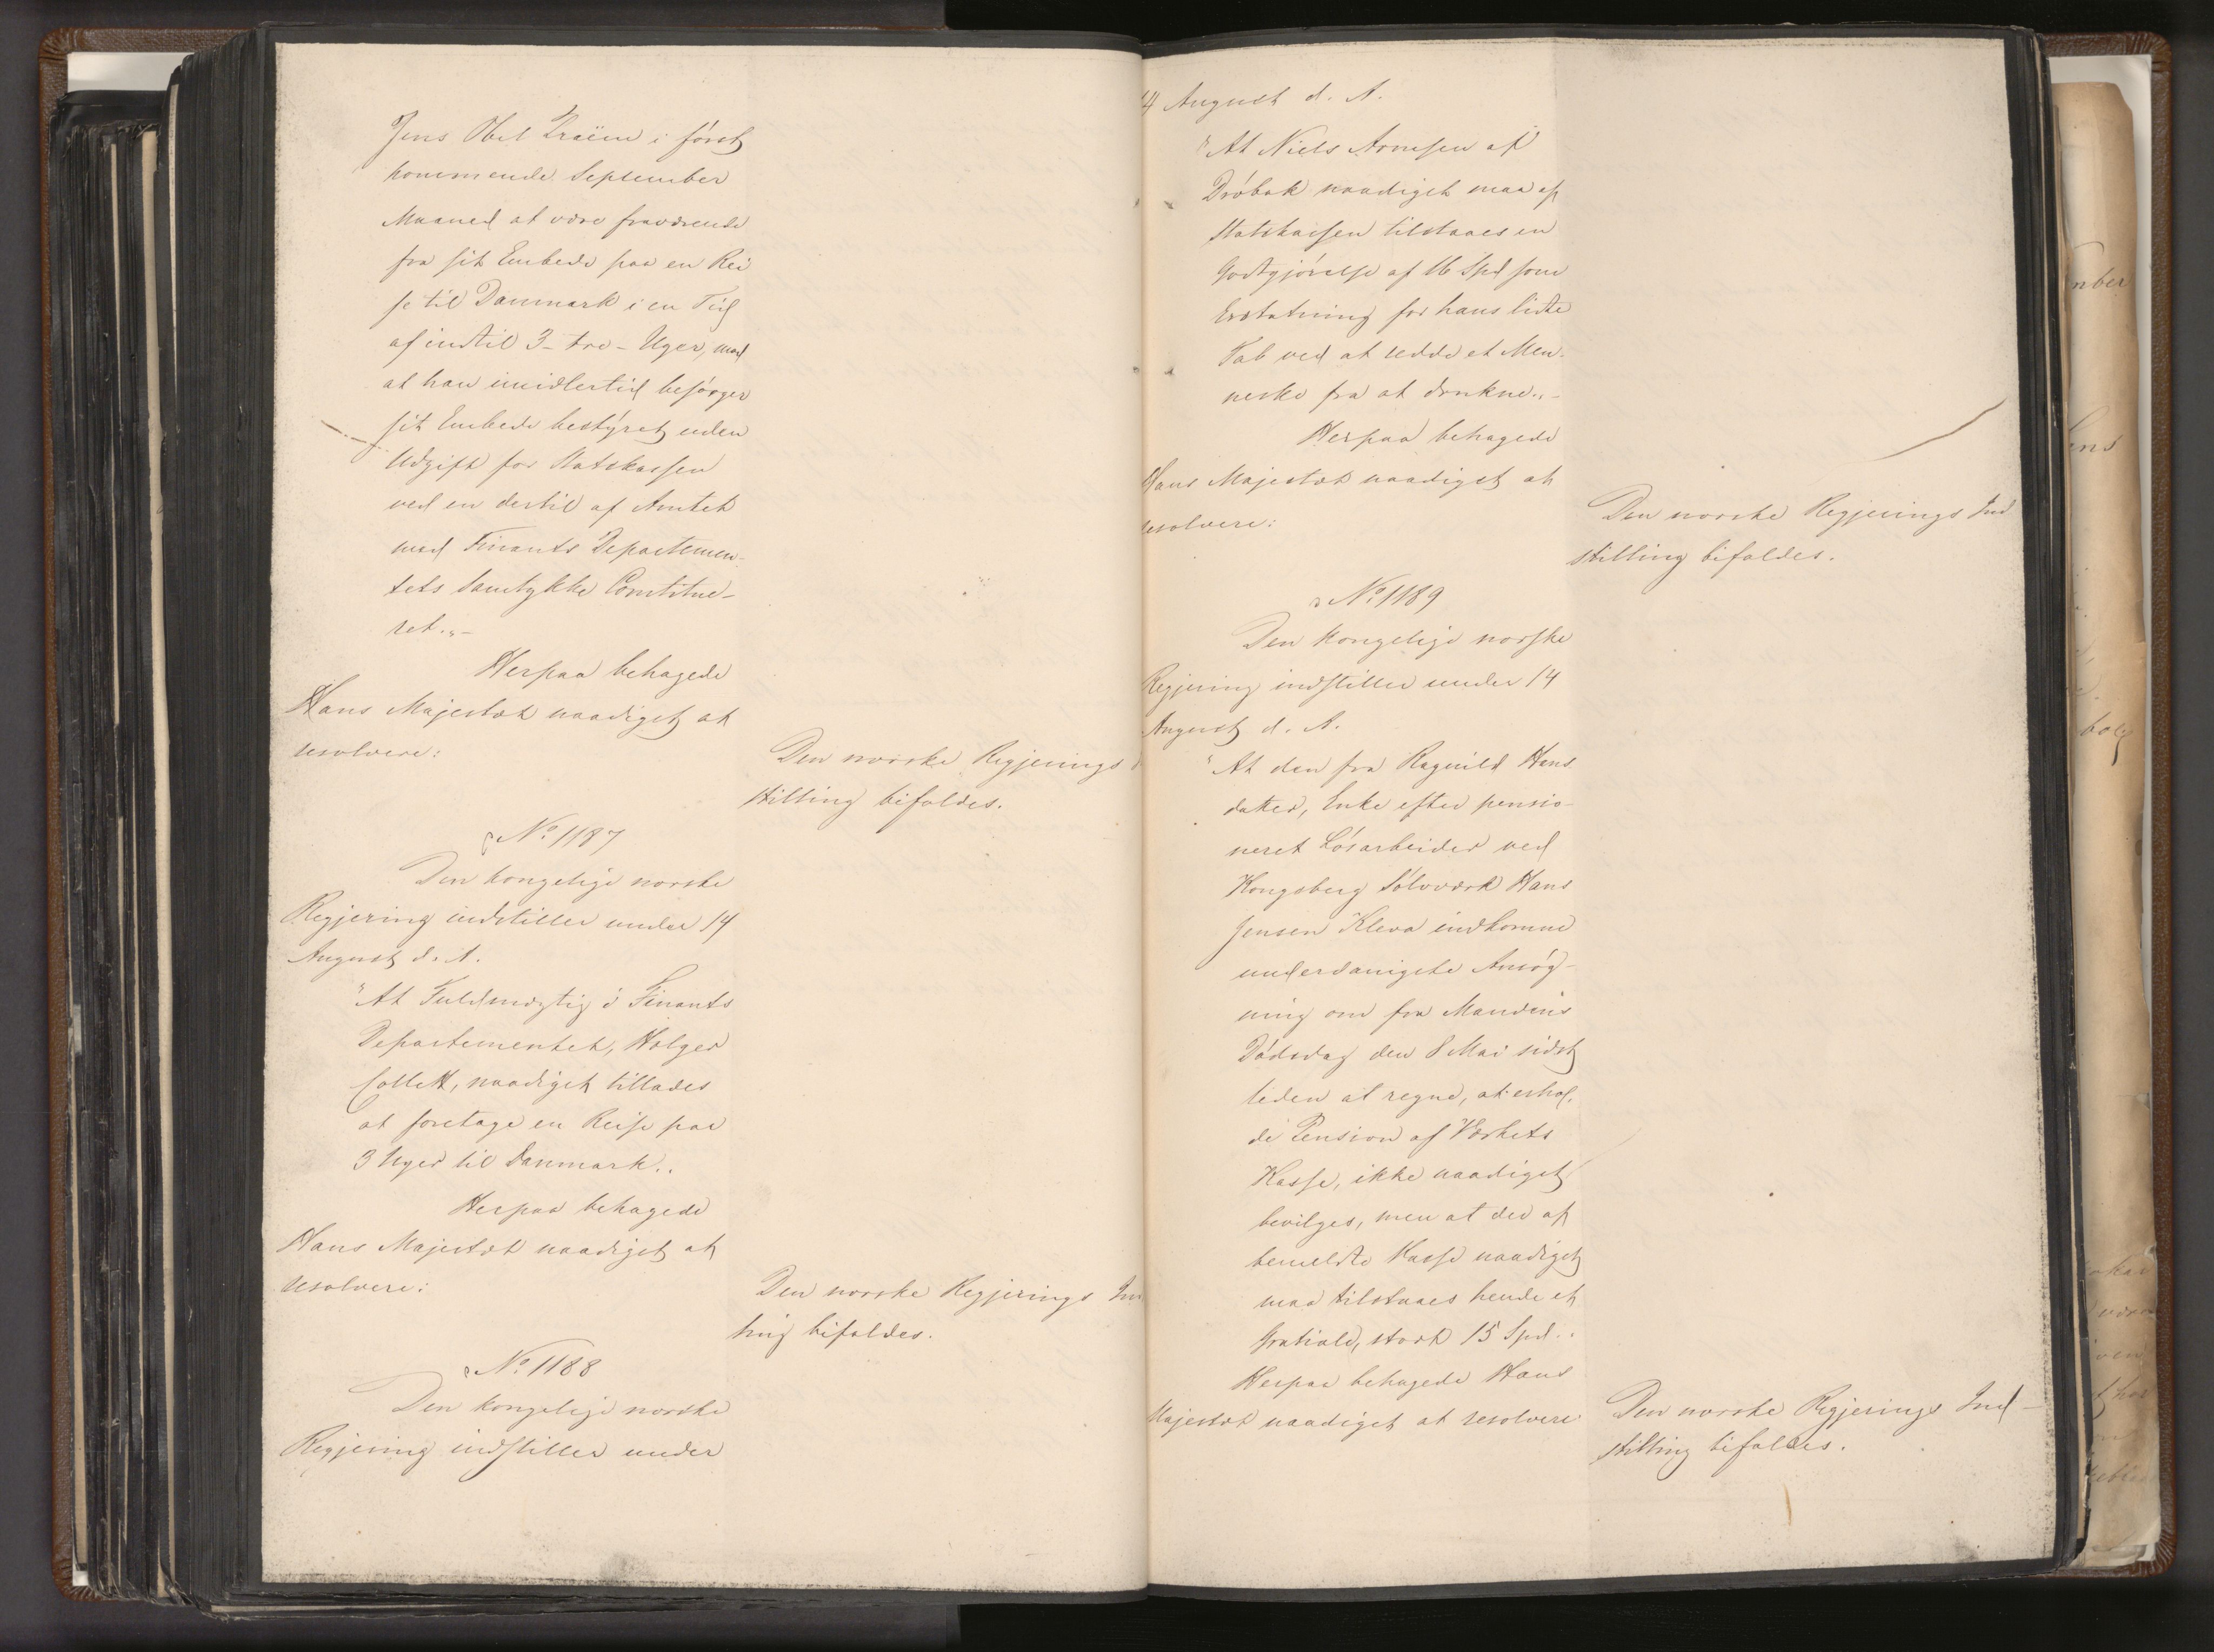 Jens Obel i først
kommende September
Maaned at være fraværende
fra sit Embede paa en Rei
se til Danmark i en Tid
af indtil 3 - tre - Uger, mod
at han imidlertid besørger
sit Embede bestyret uden
Udgift for Statskassen
ved en dertil af Amtet
med Finants Departemen-
tets Samtykke Constitue-
ret."-
Herpaa behagede
Hans Majestæt naadigst at
resolvere:
Den norske Regjerings
stilling bifaldes.
No 1187
Den kongelige norske
Regjering indstiller under 14
August d. A.
"At Fuldmægtig i Finants
Departementet, Holger
Collett, naadigst tillades
at foretage en Reise paa
3 Uger til Danmark."
Herpaa behagede
Hans Majestæt naadigst at
resolvere:
Den norske Regjerings In
ling bifaldes.
No 1188
Den kongelige norske
Regjering indstiller under
14 August d. A.
"At Niels Arnesen af
Drøbak naadigst maa af
Statskassen tilstaaes en
Godtgjørelse af 16 Spd som
Erstatning for hans lidte
Tab ved at redde et Men-
neske fra at drukne."-
Herpaa behagede
Hans Majestæt naadigst at
resolvere:
Den norske Regjerings Ind
stilling bifaldes.
No 1189
Den kongelige norske
Regjering indstiller under 14
August d. A.
"At den fra Ragnild Hans
datter, Enke efter pensio-
neret Løsarbeider ved
Kongsberg Sølvværk Hans
Jensen Kleva indkomne
underdanigste Ansøg-
ning om fra Mandens
Dødsdag den 8 Mai sidst
leden at regne, at erhol-
de Pension af Værkets
Kasse, ikke naadigst
bevilges, men at der af
bemeldte Kasse naadigst
maa tilstaaes hende et
Gratiale, stort 15 Spd."
Herpaa behagede Hans
Majestæt naadigst at resolvere
Den norske Regjerings Ind-
stilling bifaldes.